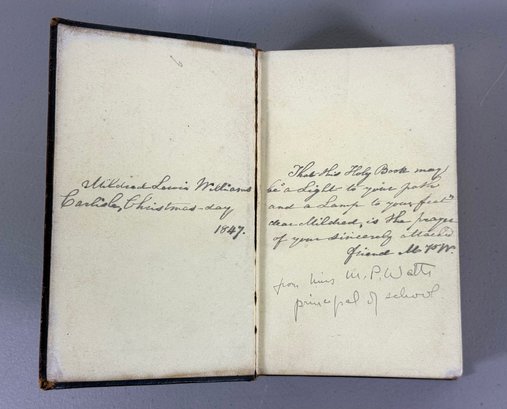 Mildred Lewis Williams
Carlisle, Christmas-day
1847.
That this Holy Book may
be "a Light to your path
and a Lamp to your feet"
dear Mildred, is the prayer
of your sincerely attached
friend M.P.W.
from Miss M. P. Watts
principal of school